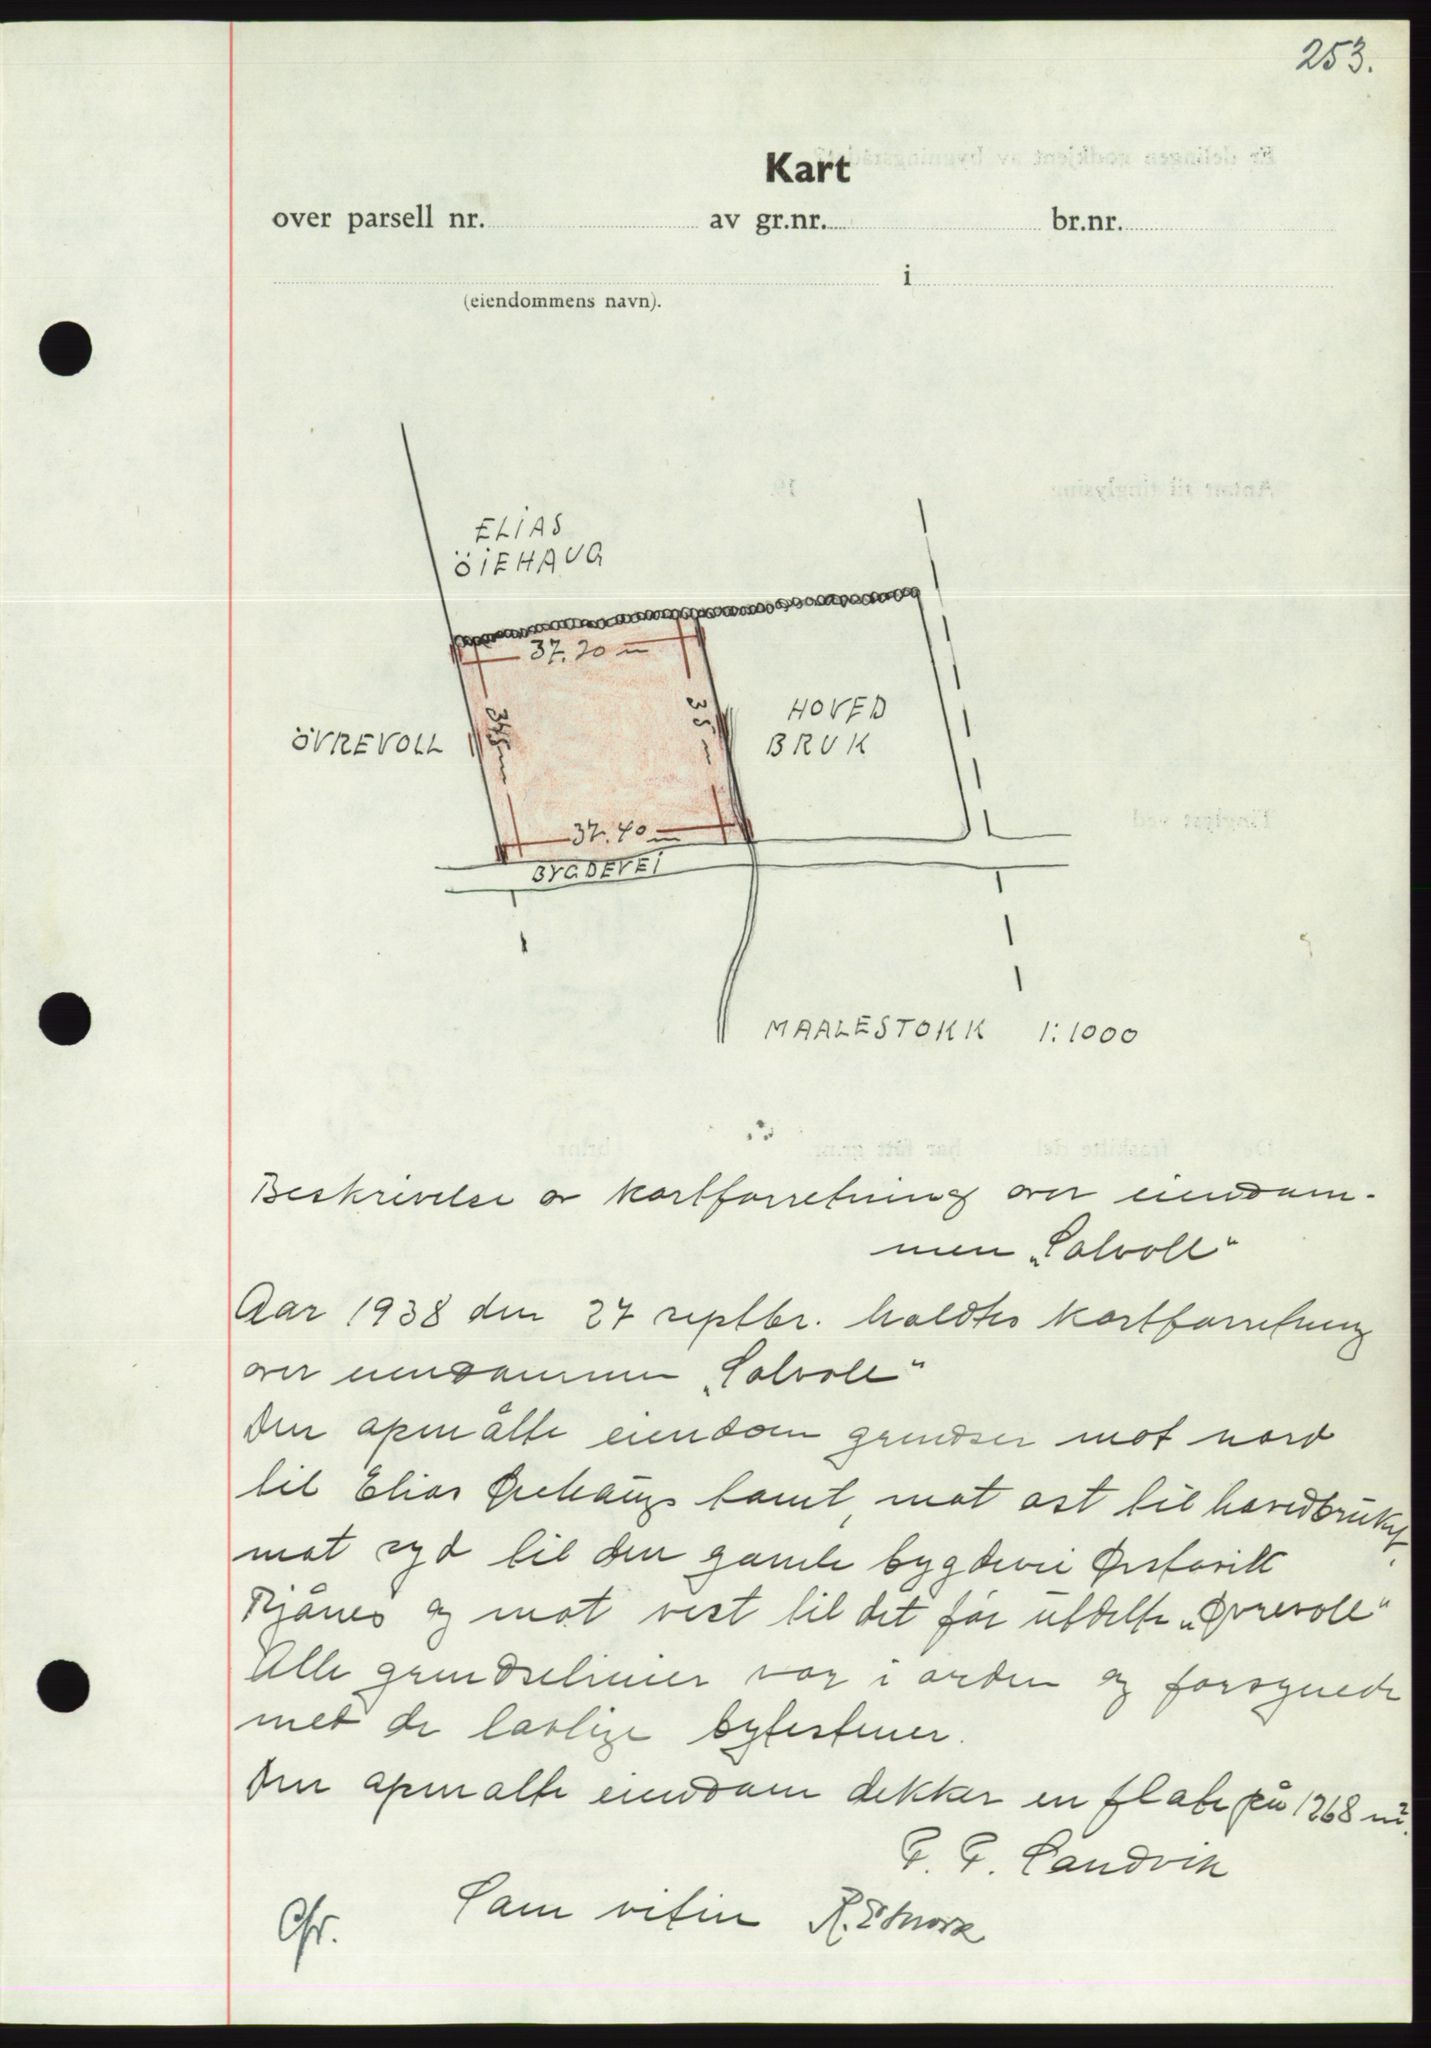 253.
Kart
over parsell nr. av gr.nr. br.nr.
i
(eiendommens navn).
ELIAS
ÖIEHAUG
37.20 m
HOVED
BRUK
ÖVREVOLL
34.5 m
35 m
37.40 m
BYGDEVEI
MAALESTOKK 1:1000
Beskrivelse av kartforretning over eiendom-
men „Solvoll“
Aar 1938 den 27 septbr. holdtes kartforretning
over eiendommen „Solvoll“
Den opmålte eiendom grendser mot nord
til Elias Øiehaugs tomt, mot ost til hovedbruket,
mot syd til den gamle bygdevei Ørstavik
og mot vest til det før utdelte „Øvrevoll“
Alle grendselinier var i orden og forsynede
met de lovlige bytestener.
Den opmalte eiendom dekker en flate på 1268 m².
P. P. Sandvik
Som vitin